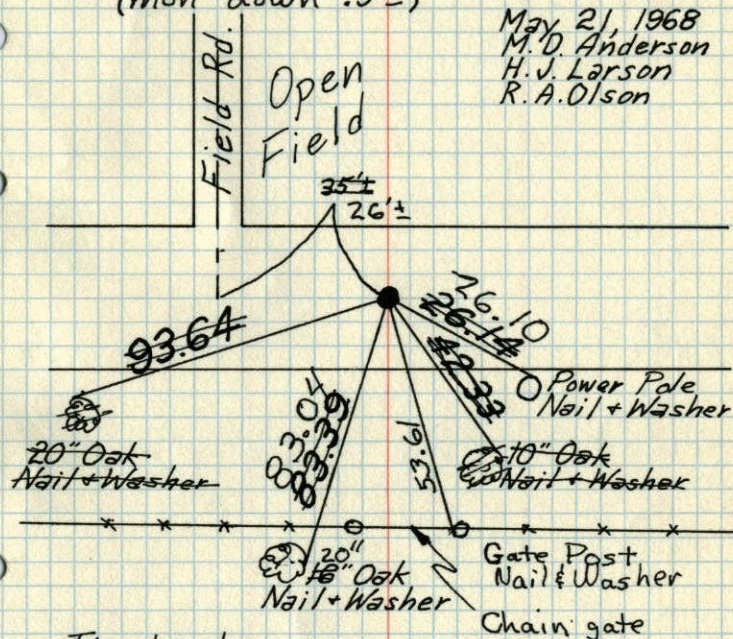 (Mon down .5'±)
May 21, 1968
M. D. Anderson
H. J. Larson
R. A. Olson
Field Rd.
Open
Field
35'±
26'±
93.64
26.10
26.14
42.33
83.04
83.39
53.61
Power Pole
Nail & Washer
20" Oak
Nail & Washer
10" Oak
Nail & Washer
20"
18" Oak
Nail & Washer
Gate Post
Nail & Washer
Chain gate